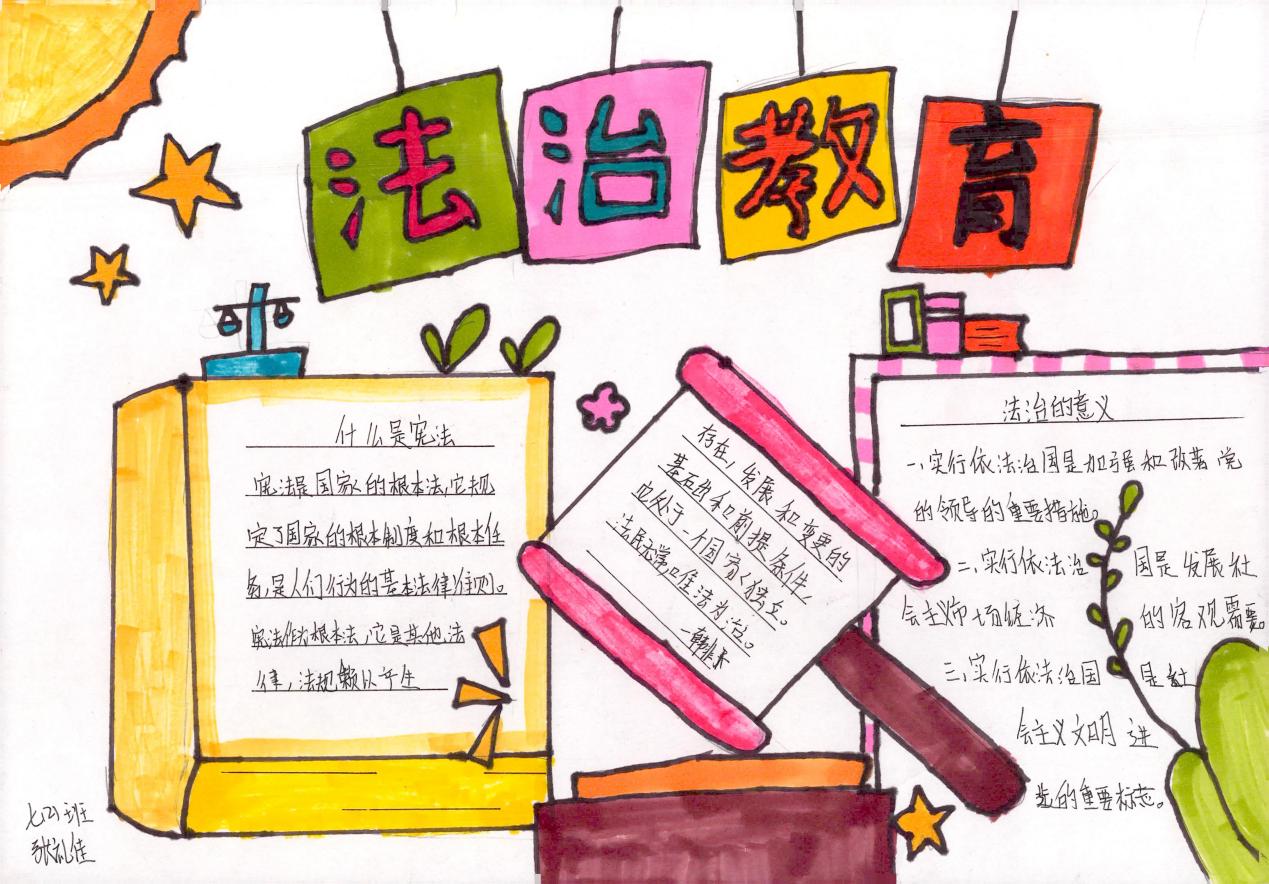 法治教育
什么是宪法
宪法是国家的根本法,它规
定了国家的根本制度和根本任
务,是人们行为的基本法律准则。
宪法作为根本法,它是其他法
律,法规赖以产生
存在,发展和变更的
基石出和前提条件,
应处于一个国家独立。
法民无常口隹法为治。
一韩非子
法治的意义
一,实行依法治国是加强和改善党
的领导的重要措施。
二,实行依法治国是发展社
会主义市场经济的客观需要。
三,实行依法治国是社
会主义文明进
步的重要标志。
七(2)班
张礼佳